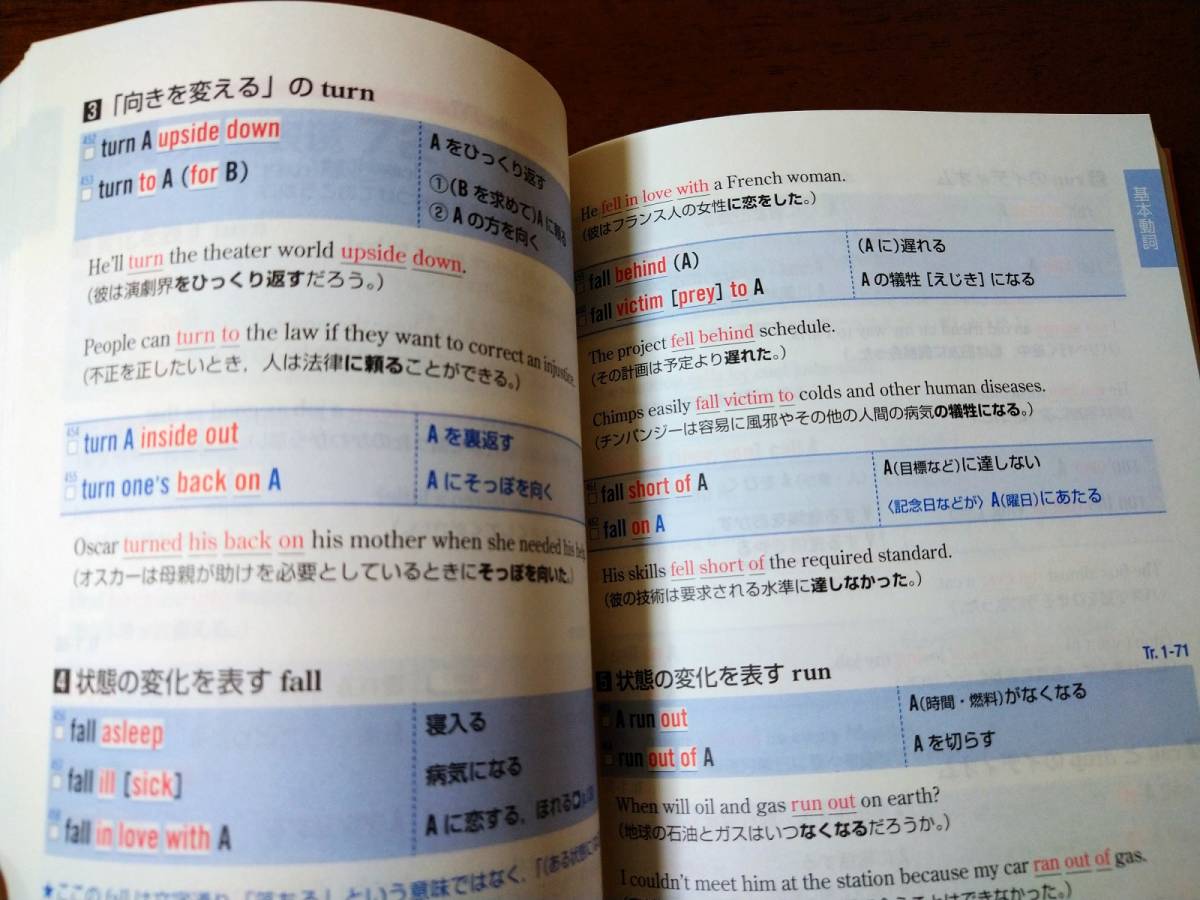 3 「向きを変える」の turn
452 turn A upside down A をひっくり返す
453 turn to A (for B) ①(B を求めて)A に頼る
② A の方を向く
He'll turn the theater world upside down.
(彼は演劇界をひっくり返すだろう。)
People can turn to the law if they want to correct an injustice.
(不正を正したいとき，人は法律に頼ることができる。)
454 turn A inside out A を裏返す
455 turn one's back on A A にそっぽを向く
Oscar turned his back on his mother when she needed his
(オスカーは母親が助けを必要としているときにそっぽを向いた。)
4 状態の変化を表す fall
fall asleep 寝入る
fall ill [sick] 病気になる
fall in love with A A に恋する，ほれる
★ここの fall は文字通り「落ちる」という意味ではなく，「(ある状態に
基本動詞
He fell in love with a French woman.
(彼はフランス人の女性に恋をした。)
fall behind (A) (A に)遅れる
fall victim [prey] to A A の犠牲［えじき］になる
The project fell behind schedule.
(その計画は予定より遅れた。)
Chimps easily fall victim to colds and other human diseases.
(チンパンジーは容易に風邪やその他の人間の病気の犠牲になる。)
fall short of A A(目標など)に達しない
fall on A 〈記念日などが〉A(曜日)にあたる
His skills fell short of the required standard.
(彼の技術は要求される水準に達しなかった。)
Tr. 1-71
5 状態の変化を表す run
A run out A(時間・燃料)がなくなる
run out of A A を切らす
When will oil and gas run out on earth?
(地球の石油とガスはいつなくなるだろうか。)
I couldn't meet him at the station because my car ran out of gas.